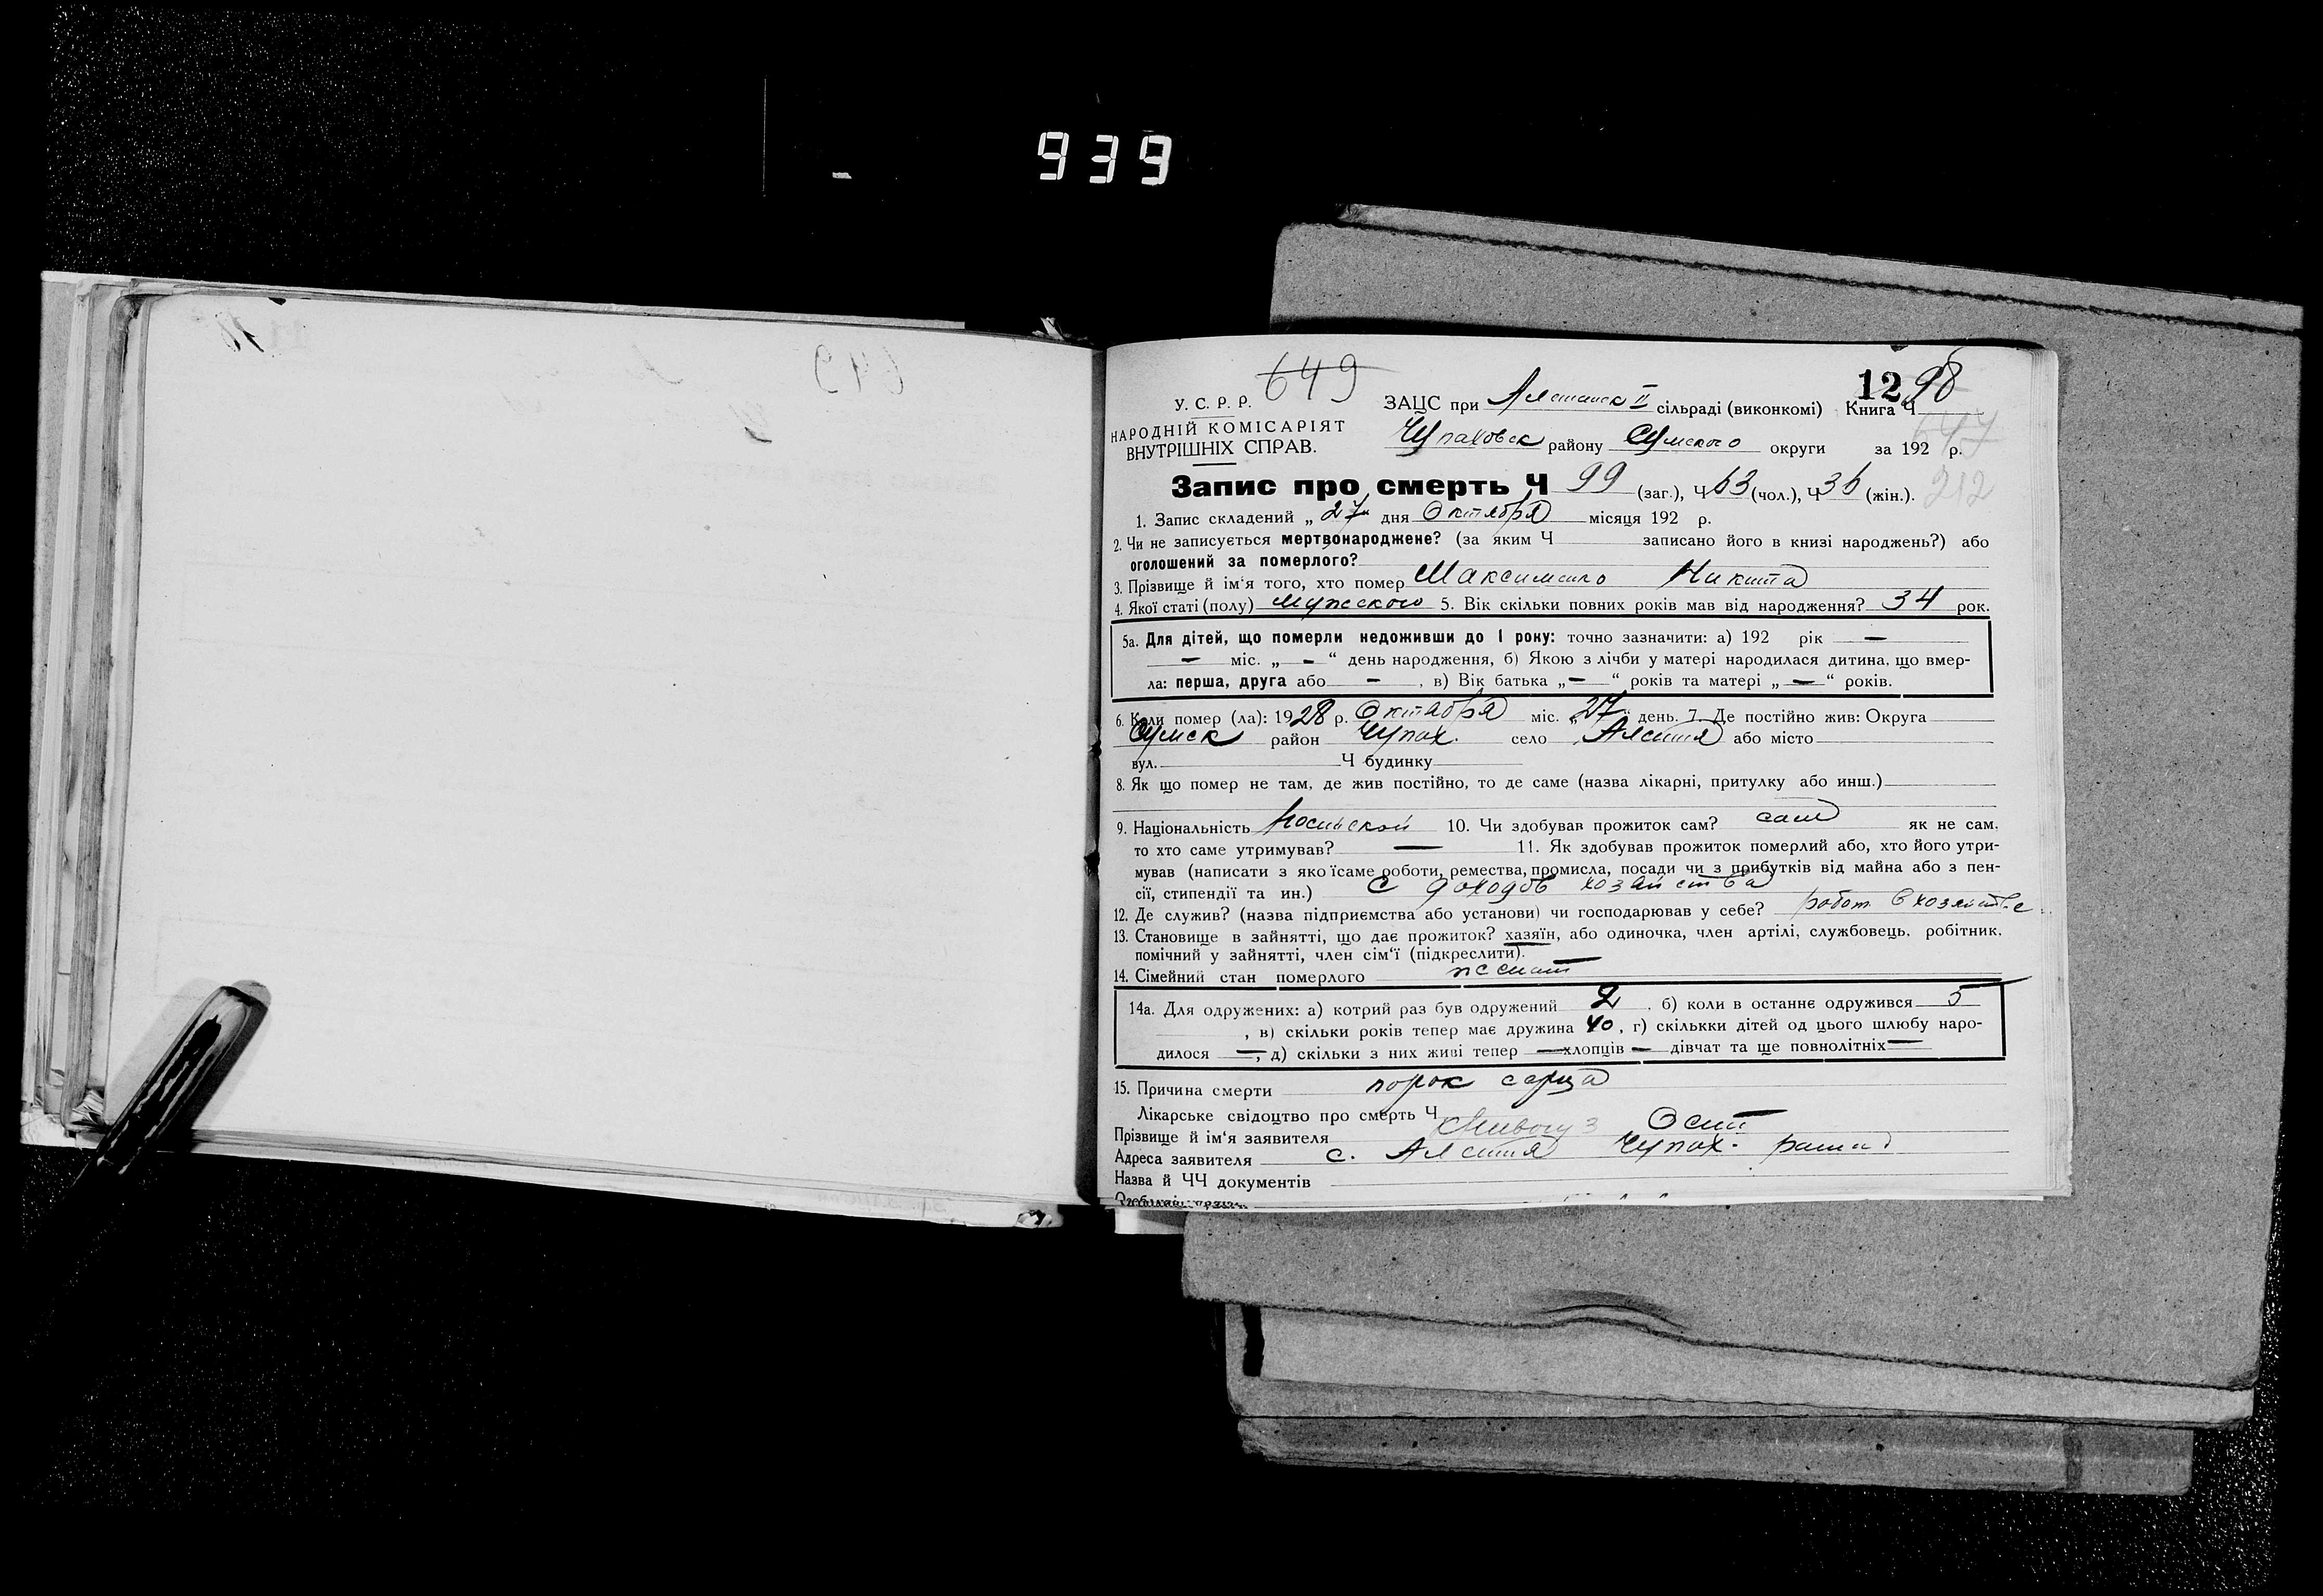 939
649
12 98
У. С. Р. Р.
ЗАЦС при II сільраді (виконкомі) Книга Ч
647
НАРОДНІЙ КОМІСАРІЯТ
ВНУТРІШНІХ СПРАВ.
Чупаховск району Сумского округи за 192 р.
212
Запис про смерть Ч 99 (заг.), Ч 63 (чол.), Ч 36 (жін.).
1. Запис складений „27“ дня Октября місяця 192 р.
2. Чи не записується мертвонароджене? (за яким Ч записано його в книзі народжень?) або
оголошений за померлого?
3. Прізвище й ім‘я того, хто помер Максименко Никита
4. Якої статі (полу) Мужского 5. Вік скільки повних років мав від народження? 34 рок.
5а. Для дітей, що померли недоживши до 1 року: точно зазначити: а) 192 рік —
— міс. „—“ день народження, б) Якою з лічби у матері народилася дитина, що вмер-
ла: перша, друга або —, в) Вік батька „—“ років та матері „—“ років.
6. Коли помер (ла): 1928 р. Октября міс. „27“ день. 7. Де постійно жив: Округа
Сумск район Чупах. село або місто
вул. Ч будинку
8. Як що помер не там, де жив постійно, то де саме (назва лікарні, притулку або инш.)
9. Національність 10. Чи здобував прожиток сам? сам як не сам,
то хто саме утримував? — 11. Як здобував прожиток померлий або, хто його утри-
мував (написати з яко їсаме роботи, ремества, промисла, посади чи з прибутків від майна або з пен-
сії, стипендії та ин.) с доходов хозяйства
12. Де служив? (назва підприємства або установи) чи господарював у себе? работ. в хозяйстве
13. Становище в зайнятті, що дає прожиток? хазяїн, або одиночка, член артілі, службовець, робітник,
помічний у зайнятті, член сім‘ї (підкреслити).
14. Сімейний стан померлого женат
14а. Для одружених: а) котрий раз був одружений 2, б) коли в останнє одружився 5
, в) скільки років тепер має дружина 40, г) скількки дітей од цього шлюбу наро-
дилося —, д) скільки з них живі тепер — хлопців — дівчат та ще повнолітніх —
15. Причина смерти порок серца
Лікарське свідоцтво про смерть Ч
Прізвище й ім‘я заявителя Осип
Адреса заявителя с. Чупах.
Назва й ЧЧ документів